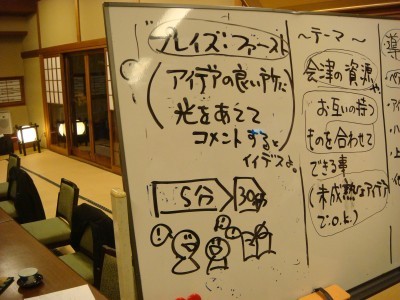 プレイズ:ファースト
(アイデアの良い所に
光をあてて
コメントすると
イイデスよ。)
5分
30秒
~テーマ~
会津の資源や
お互いの持つ
ものを合わせて
できる事
(未成熟なアイデア
でO.K.)
導